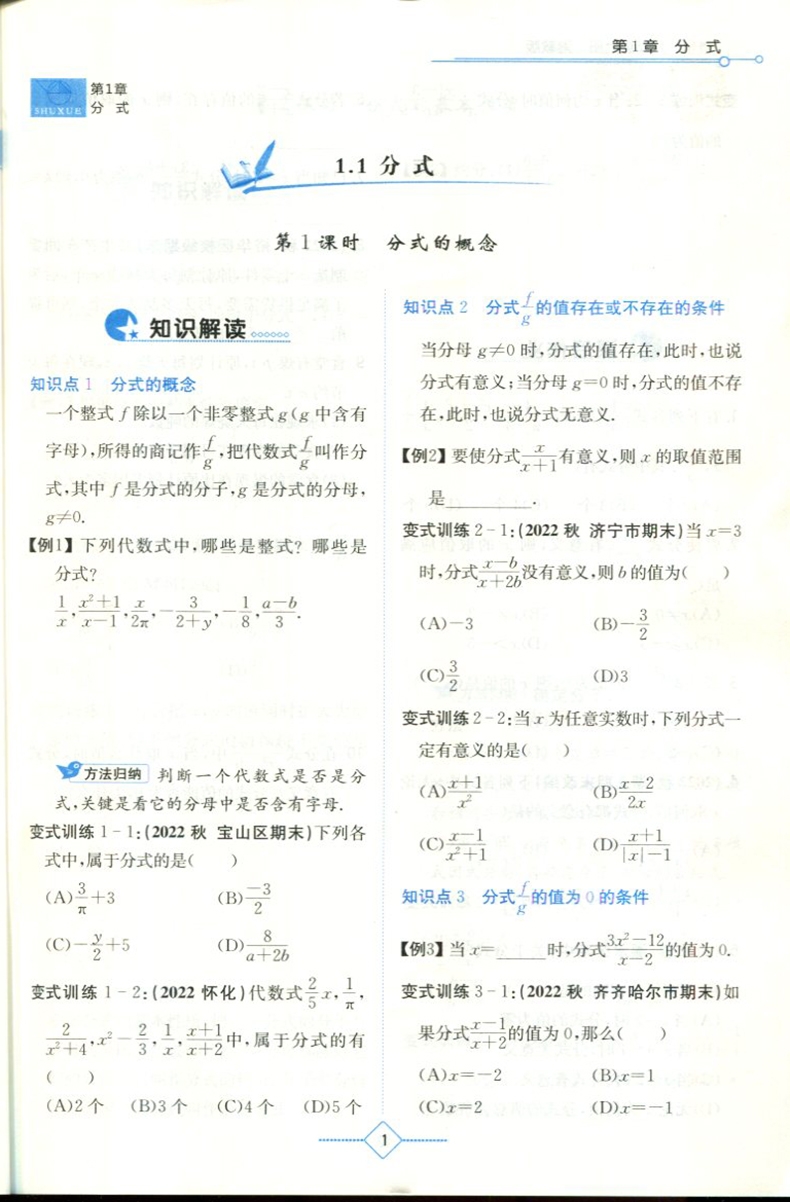 第1章 分 式
第1章
分 式
SHUXUE
1.1 分 式
第1课时 分式的概念
知识解读
知识点1 分式的概念
一个整式 f 除以一个非零整式 g(g 中含有
字母),所得的商记作 f/g,把代数式 f/g 叫作分
式,其中 f 是分式的分子,g 是分式的分母,
g≠0.
【例1】下列代数式中,哪些是整式?哪些是
分式?
1/x, (x²+1)/(x-1), x/2π, -3/(2+y), -1/8, (a-b)/3.
方法归纳 判断一个代数式是否是分
式,关键是看它的分母中是否含有字母.
变式训练1-1:(2022秋 宝山区期末)下列各
式中,属于分式的是( )
(A)3/π+3 (B)-3/2
(C)-y/2+5 (D)8/(a+2b)
变式训练1-2:(2022怀化)代数式 2/5 x, 1/π,
2/(x²+4), x²-2/3, 1/x, (x+1)/(x+2) 中,属于分式的有
( )
(A)2个 (B)3个 (C)4个 (D)5个
知识点2 分式 f/g 的值存在或不存在的条件
当分母 g≠0 时,分式的值存在,此时,也说
分式有意义;当分母 g=0 时,分式的值不存
在,此时,也说分式无意义.
【例2】要使分式 x/(x+1) 有意义,则 x 的取值范围
是________.
变式训练2-1:(2022秋 济宁市期末)当 x=3
时,分式 (x-b)/(x+2b) 没有意义,则 b 的值为( )
(A)-3 (B)-3/2
(C)3/2 (D)3
变式训练2-2:当 x 为任意实数时,下列分式一
定有意义的是( )
(A)(x+1)/x² (B)(x-2)/2x
(C)(x-1)/(x²+1) (D)(x+1)/(|x|-1)
知识点3 分式 f/g 的值为0的条件
【例3】当 x=____时,分式 (3x²-12)/(x-2) 的值为0.
变式训练3-1:(2022秋 齐齐哈尔市期末)如
果分式 (x-1)/(x+2) 的值为0,那么( )
(A)x=-2 (B)x=1
(C)x=2 (D)x=-1
1